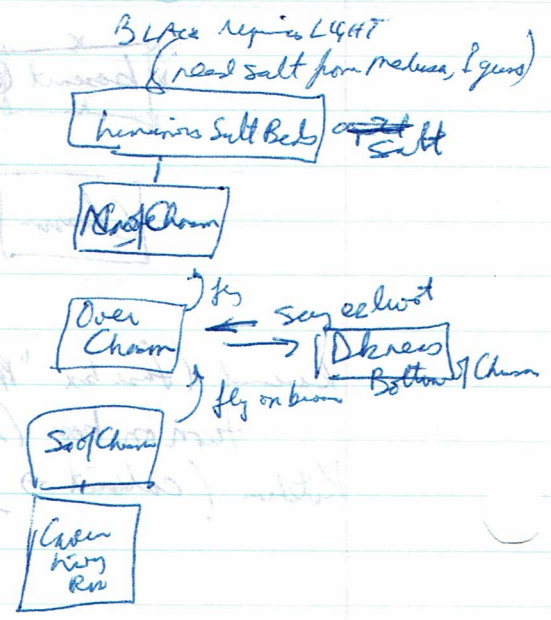 BLACK requires LIGHT
(need salt from Medusa, I guess)
Luminous Salt Beds
Salt
N of Chasm
fly
Over
Chasm
say
Dkness
Bottom of Chasm
fly on broom
S of Chasm
Cavern
Living
Rm
Kitchen (